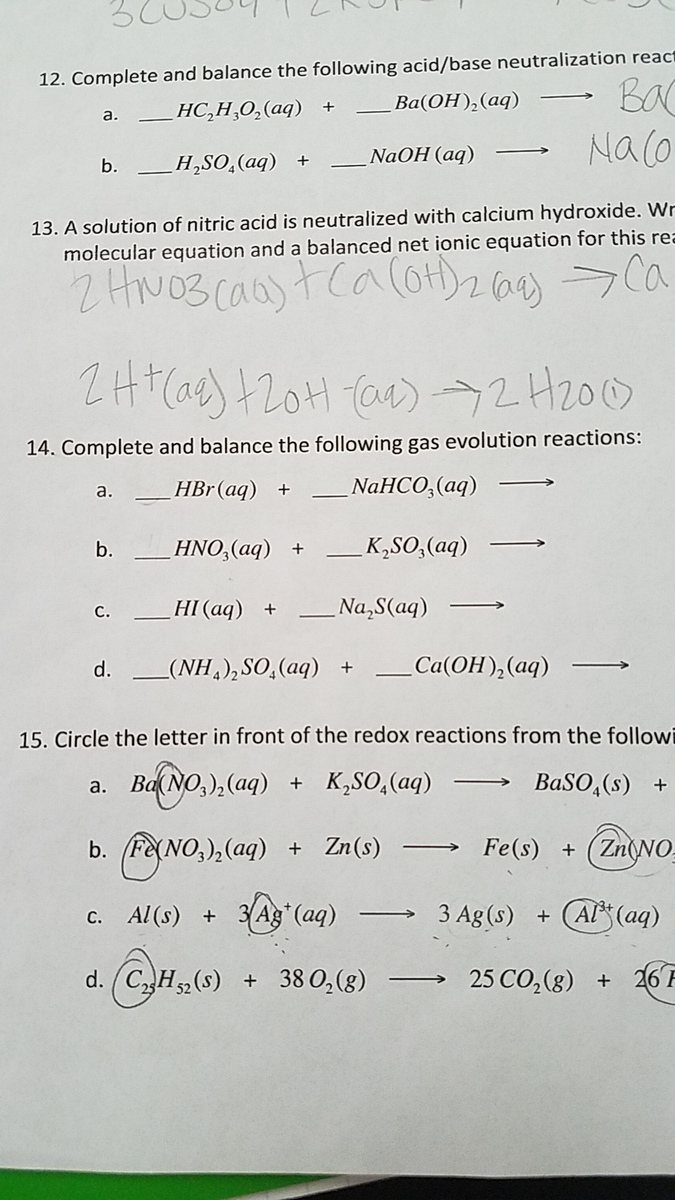 12. Complete and balance the following acid/base neutralization react
a. ___HC₂H₃O₂(aq) + ___Ba(OH)₂(aq) ⟶ Ba(
b. ___H₂SO₄(aq) + ___NaOH(aq) ⟶ Na(o
13. A solution of nitric acid is neutralized with calcium hydroxide. Wr
molecular equation and a balanced net ionic equation for this rea
2HNO3(aq) + Ca(OH)2(aq) → Ca
2H+(aq) + 2OH-(aq) → 2H2O(l)
14. Complete and balance the following gas evolution reactions:
a. ___HBr(aq) + ___NaHCO₃(aq) ⟶
b. ___HNO₃(aq) + ___K₂SO₃(aq) ⟶
c. ___HI(aq) + ___Na₂S(aq) ⟶
d. ___(NH₄)₂SO₄(aq) + ___Ca(OH)₂(aq) ⟶
15. Circle the letter in front of the redox reactions from the followi
a. Ba(NO₃)₂(aq) + K₂SO₄(aq) ⟶ BaSO₄(s) +
b. Fe(NO₃)₂(aq) + Zn(s) ⟶ Fe(s) + Zn(NO
c. Al(s) + 3Ag⁺(aq) ⟶ 3 Ag(s) + Al³⁺(aq)
d. C₂₅H₅₂(s) + 38 O₂(g) ⟶ 25 CO₂(g) + 26 H